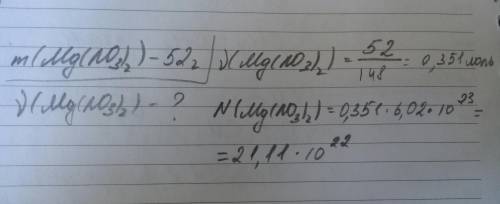 m(Mg(NO3)2) - 52г | ν(Mg(NO3)2) = 52/148 = 0,351 моль
ν(Mg(NO3)2) - ? N(Mg(NO3)2) = 0,351 · 6,02 · 10^23 =
= 21,11 · 10^22